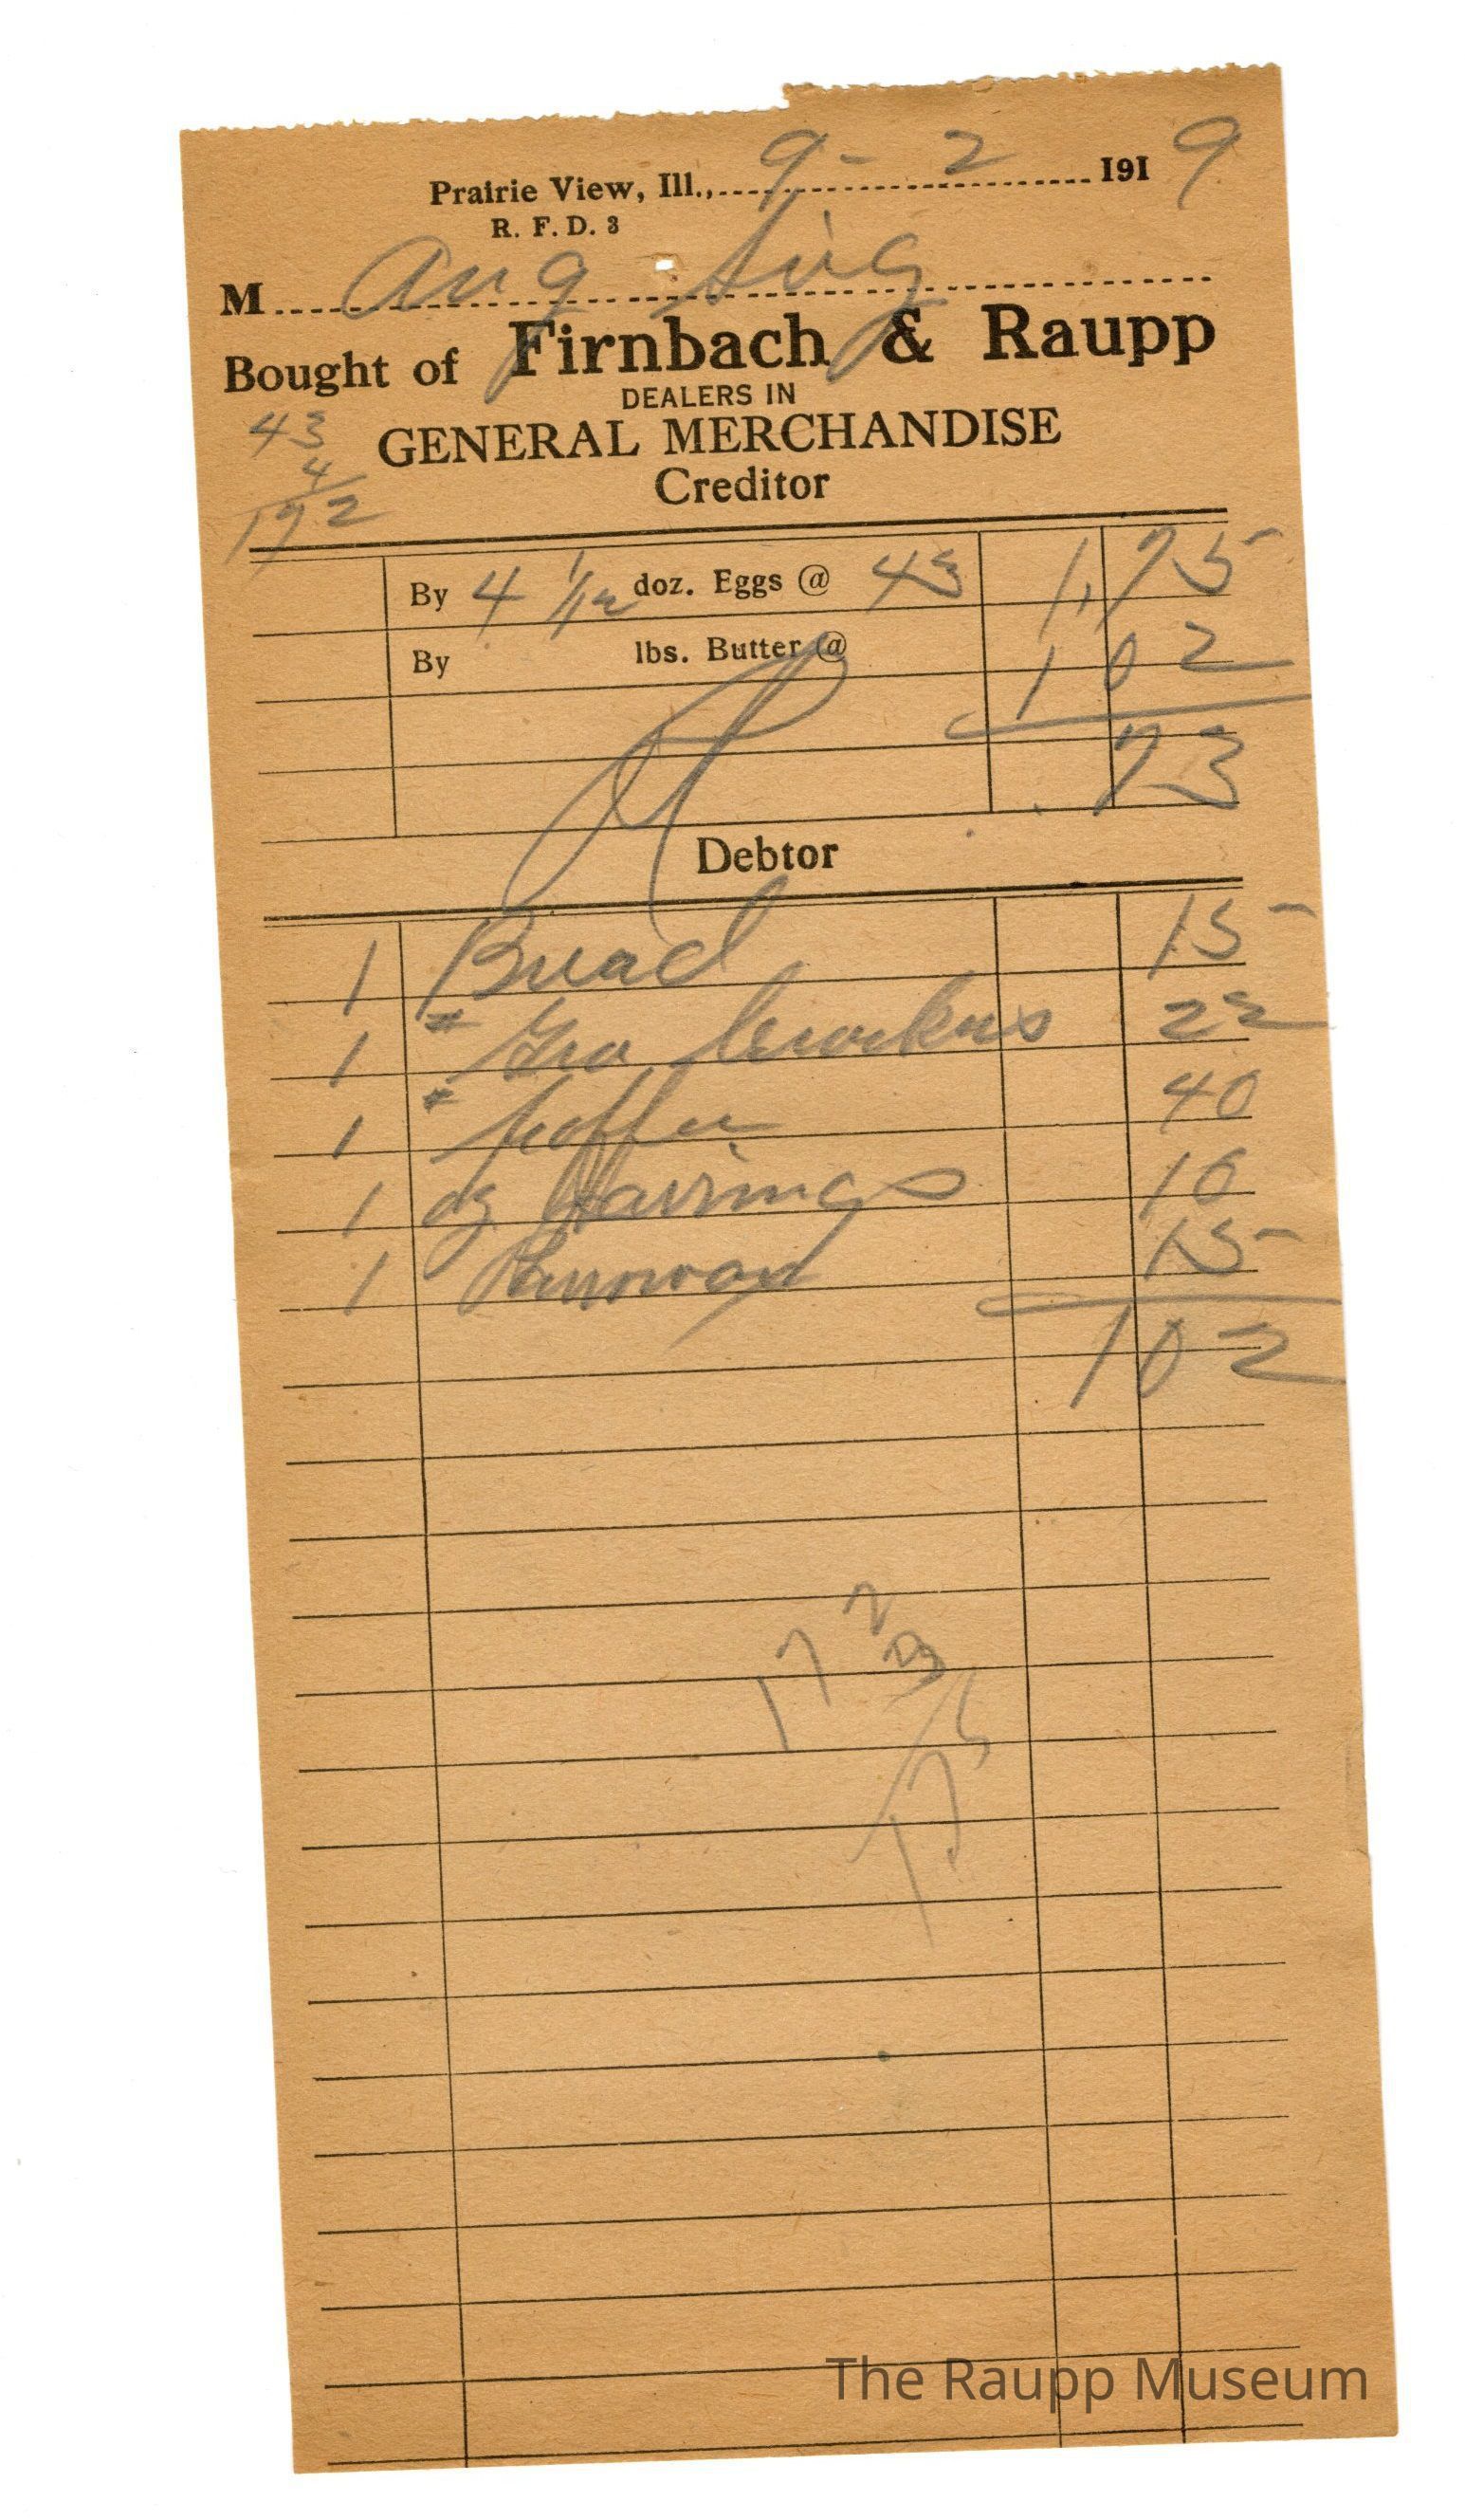 Prairie View, Ill., 9 - 2 1919
R. F. D. 3
M Aug Sig
Bought of Firnbach & Raupp
DEALERS IN
GENERAL MERCHANDISE
Creditor
43
4
172
By 4 1/12 doz. Eggs @ 43 1,75
By lbs. Butter @ 102
73
Debtor
1 Bread 15
1 # Gra Crackers 22
1 # Coffee 40
1 dz Hairings 10
1 Parrowax 15
102
172
3
175
The Raupp Museum